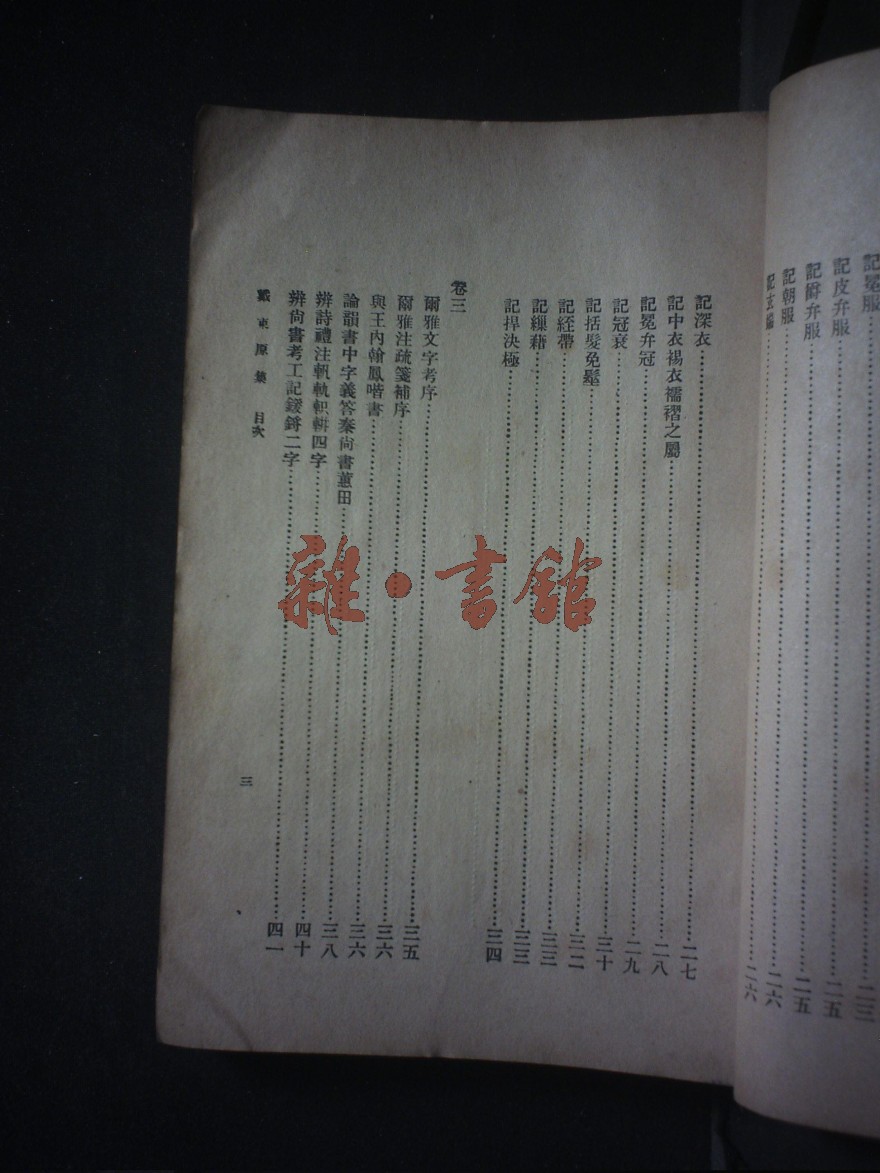 記冕服……二三
記皮弁服……二五
記爵弁服……二五
記朝服……二六
記玄端……二六
記深衣……二七
記中衣裼衣襦褶之屬……二八
記冕弁冠……二九
記冠衰……三十
記括髮免髽……三二
記絰帶……三三
記繅藉……三三
記捍決極……三四
卷三
爾雅文字考序……三五
爾雅注疏箋補序……三六
與王內翰鳳喈書……三六
論韻書中字義答秦尚書蕙田……三八
辨詩禮注軓軌軹軒四字……四十
辨尚書考工記鍰鋝二字……四一
戴東原集 目次
三
雜·書館